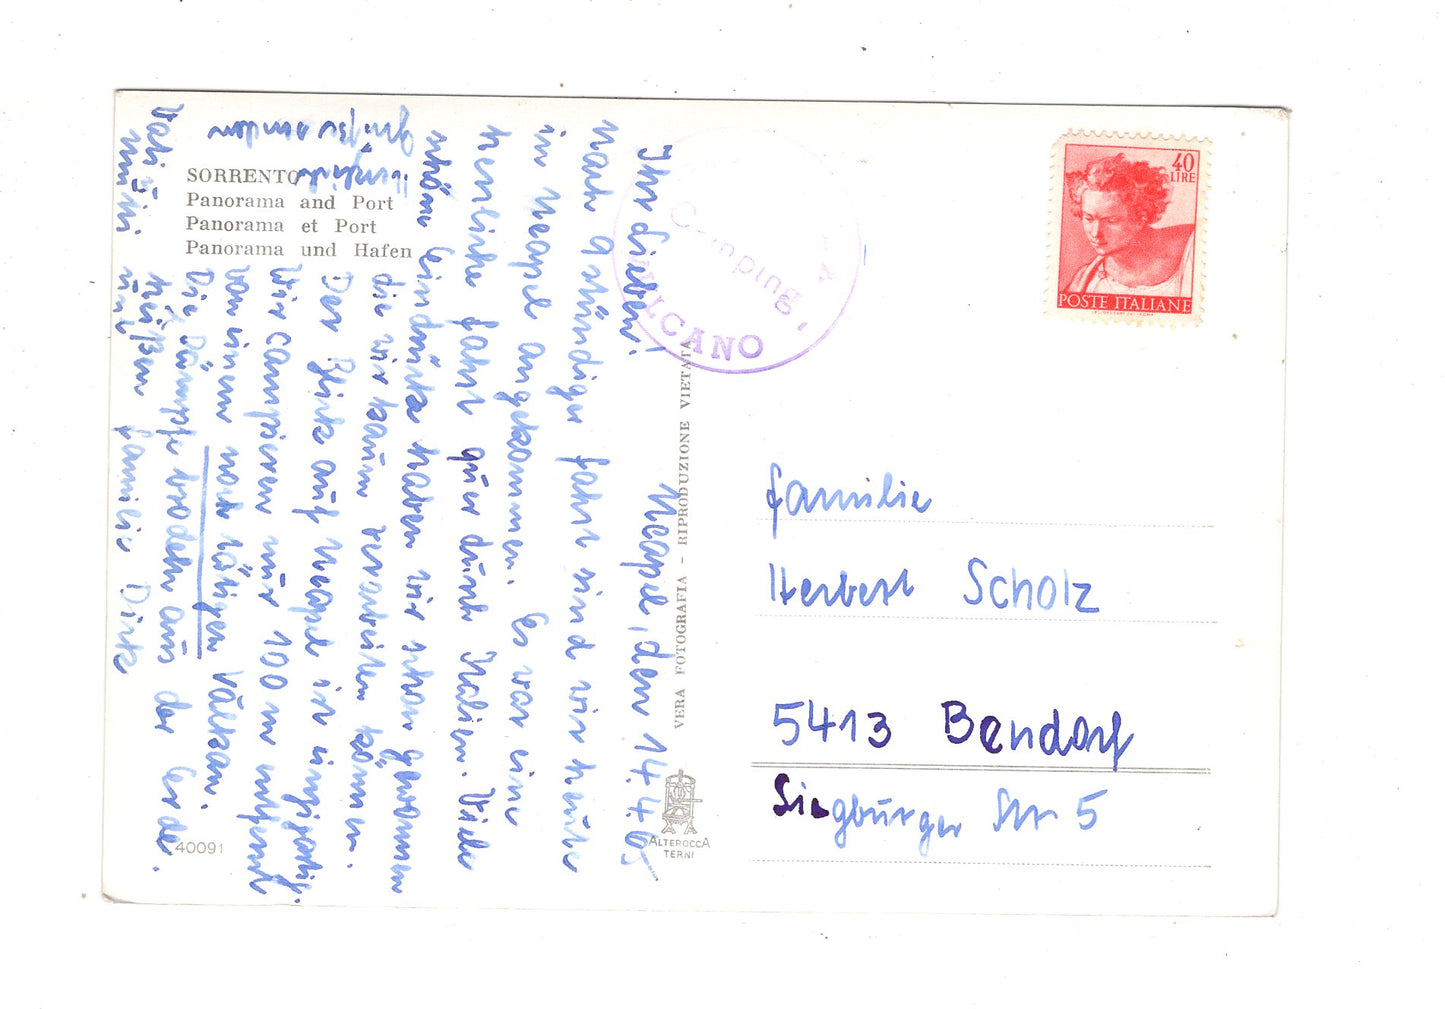 SORRENTO
Panorama and Port
Panorama et Port
Panorama und Hafen
Neapel, den 14.4.65
Ihr Lieben!
Nach 9 stündiger Fahrt sind wir heute
in Neapel angekommen. Es war eine
herrliche Fahrt quer durch Italien. Viele
schöne Eindrücke haben wir schon gewonnen
die wir kaum verarbeiten können.
Der Blick auf Neapel ist einzigartig.
Wir campieren nur 100 m entfernt
von einem noch tätigen Vulkan.
Die Dämpfe brodeln aus der Erde.
Herzliche
Grüße senden
Familie Dirk
40091
VERA FOTOGRAFIA - RIPRODUZIONE VIETATA
ALTEROCCA
TERNI
Camping
VULCANO
40
LIRE
POSTE ITALIANE
Familie
Herbert Scholz
5413 Bendorf
Siegburger Str 5